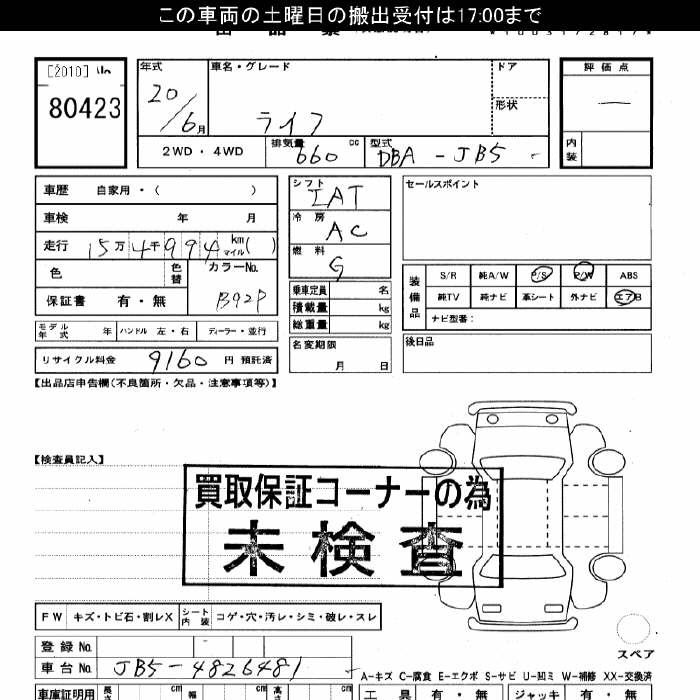 この車両の土曜日の搬出受付は17:00まで
[2010]
80423
年式
20/6月
車名・グレード
ライフ
ドア
形状
評価点
内装
2WD・4WD
排気量 660 cc
型式 DBA-JB5
車歴 自家用・( )
車検 年 月
走行 15万4千994km マイル( )
色 色替 カラーNo. B92P
保証書 有・無
シフト IAT
冷房 AC
燃料 G
乗車定員 名
積載量 kg
総重量 kg
セールスポイント
装備品
S/R 純A/W P/S P/W ABS
純TV 純ナビ 革シート 外ナビ エアB
ナビ型番:
モデル年式 年 ハンドル 左・右 ディーラー・並行
名変期限 月 日
後日品
リサイクル料金 9160 円 預託済
【出品店申告欄(不良箇所・欠品・注意事項等)】
【検査員記入】
買取保証コーナーの為
未検査
FW キズ・トビ石・割レX シート内装 コゲ・穴・汚レ・シミ・破レ・スレ
スペア
登録No.
車台No. JB5-4826481
A-キズ C-腐食 E-エクボ S-サビ U-凹ミ W-補修 XX-交換済
車庫証明用 長さ cm 幅 cm 高さ cm
工具 有・無 ジャッキ 有・無